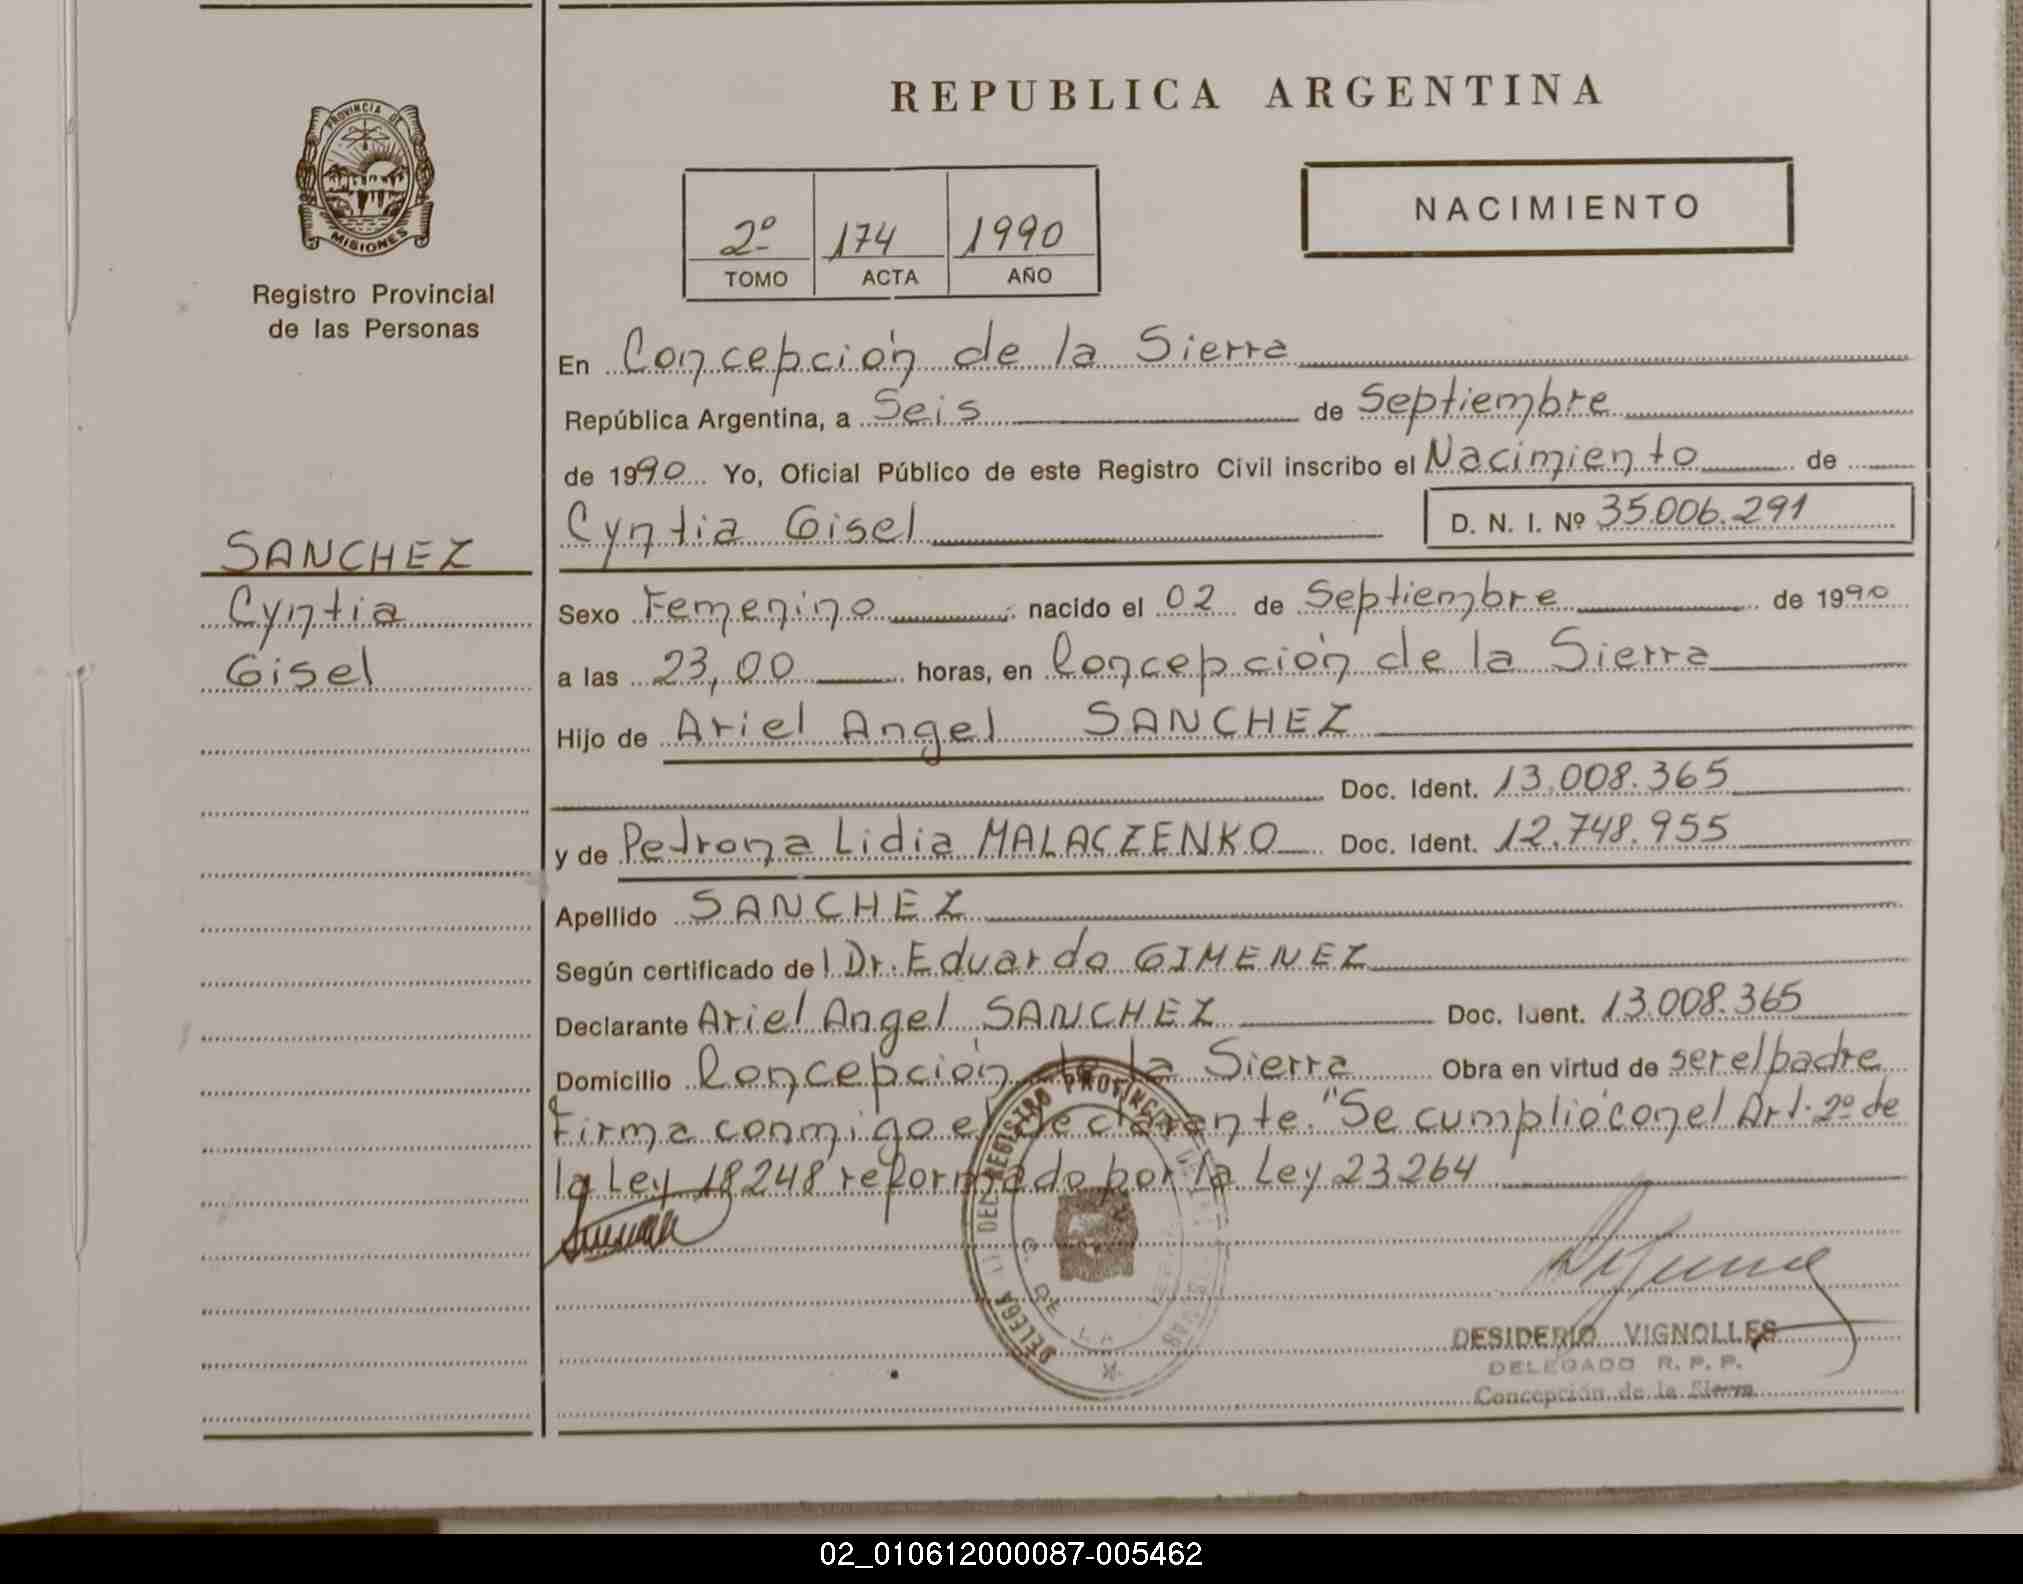 REPUBLICA ARGENTINA
PROVINCIA DE
MISIONES
Registro Provincial
de las Personas
2º 174 1990
TOMO ACTA AÑO
NACIMIENTO
En Concepción de la Sierra
República Argentina, a Seis de Septiembre
de 1990 Yo, Oficial Público de este Registro Civil inscribo el Nacimiento de
Cyntia Gisel D. N. I. Nº 35.006.291
SANCHEZ
Cyntia
Gisel
Sexo Femenino nacido el 02 de Septiembre de 1990
a las 23,00 horas, en Concepción de la Sierra
Hijo de Ariel Angel SANCHEZ
Doc. Ident. 13.008.365
y de Pedrona Lidia MALACZENKO Doc. Ident. 12.748.955
Apellido SANCHEZ
Según certificado del Dr. Eduardo GIMENEZ
Declarante Ariel Angel SANCHEZ Doc. Ident. 13.008.365
Domicilio Concepción de la Sierra Obra en virtud de ser el padre
Firma conmigo el declarante. "Se cumplió con el Art. 2º de
la Ley 18248 reformado por la Ley 23264
REGISTRO PROVINCIAL DE LA
DESIDERIO VIGNOLLES
DELEGADO R. P. P.
Concepción de la Sierra
02_010612000087-005462